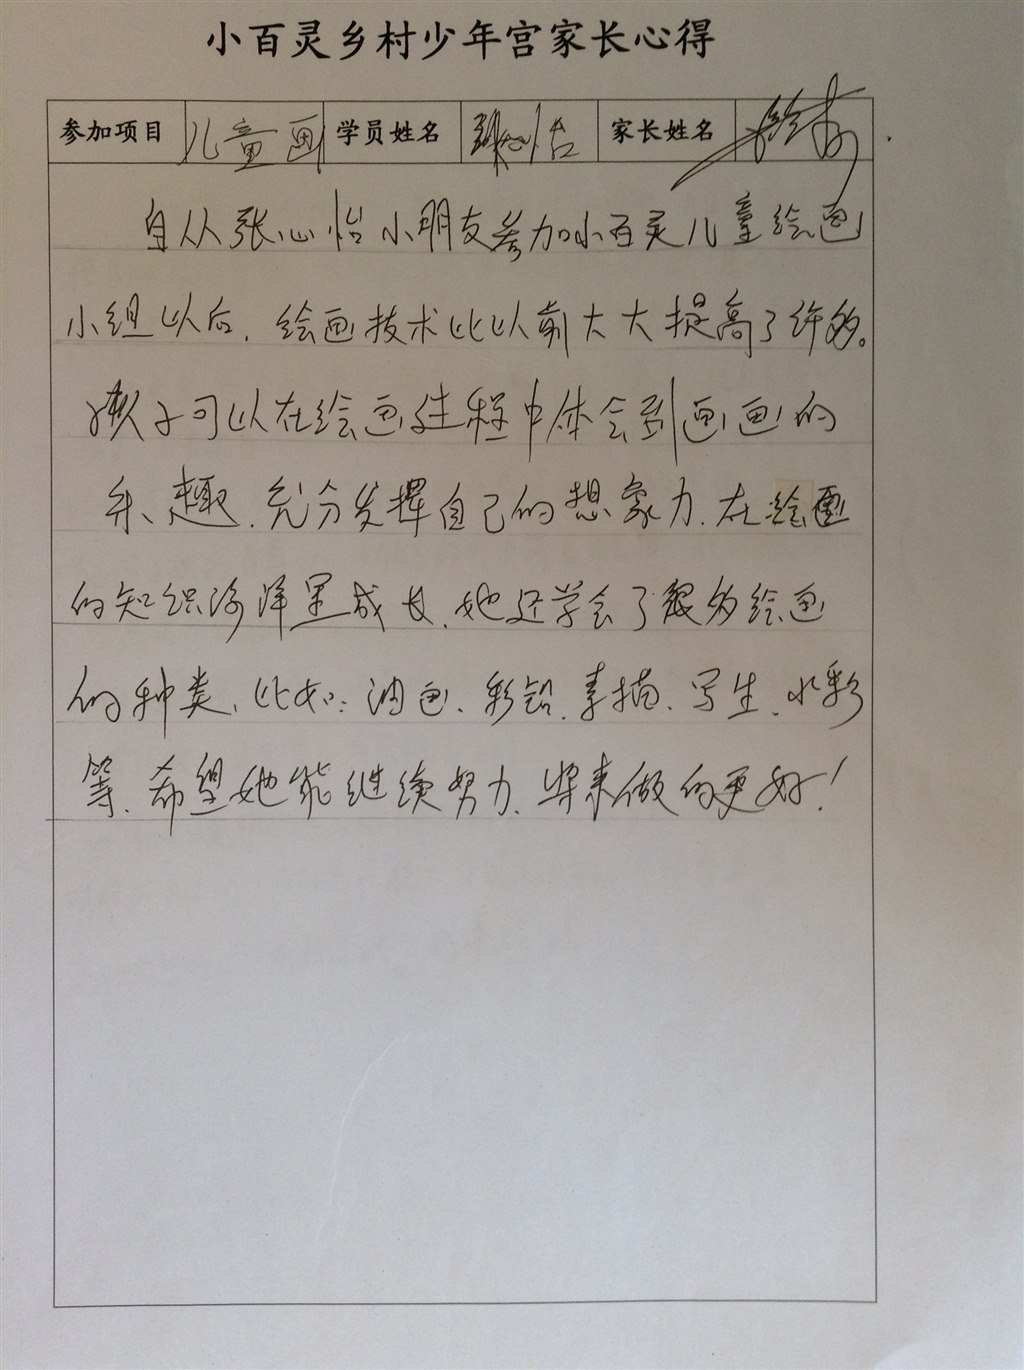 小百灵乡村少年宫家长心得
参加项目 儿童画 学员姓名 张心怡 家长姓名
自从张心怡小朋友参加小百灵儿童绘画
小组以后，绘画技术比以前大大提高了许多。
孩子可以在绘画过程中体会到画画的
乐趣，充分发挥自己的想象力，在绘画
的知识海洋里成长，她还学会了很多绘画
的种类，比如：油画、彩铅、素描、写生、水彩
等，希望她能继续努力，将来做的更好！